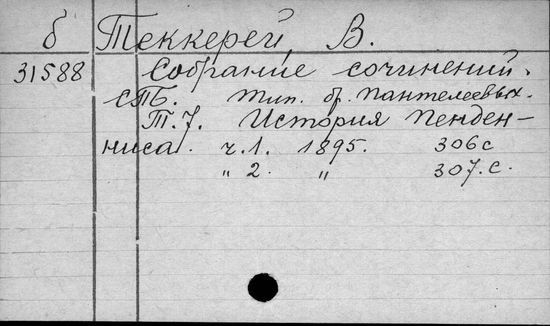 б Теккерей, В.
31588 Собрание сочинений.
СПБ. Тип. бр. Пантелеевых.
Т. 7. История Пенден-
ниса. ч. 1. 1895. 306 с
„ 2. „ 307. с.